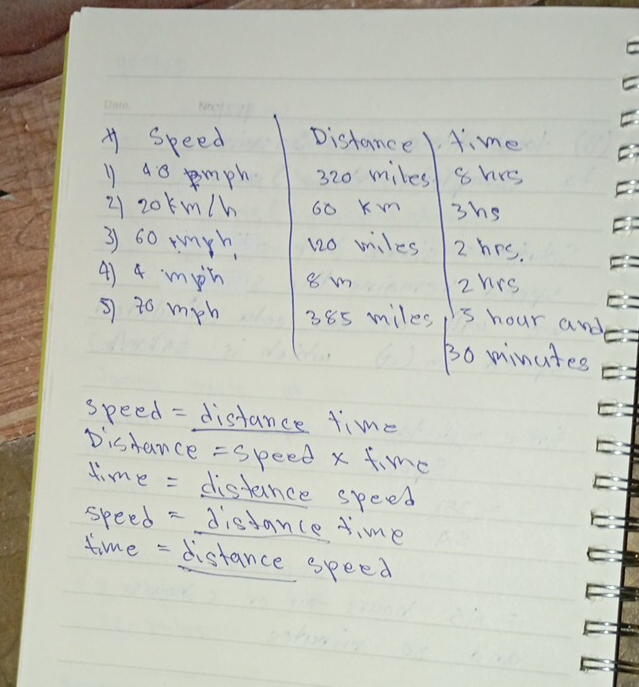 Date. No.
x) Speed Distance time
1) 40 mph 320 miles 8 hrs
2) 20 km/h 60 km 3hs
3) 60 mph, 120 miles 2 hrs.
4) 4 mph 8 m 2 hrs
5) 70 mph 385 miles 5 hour and
30 minutes
speed = distance time
Distance = speed x time
time = distance speed
speed = distance time
time = distance speed